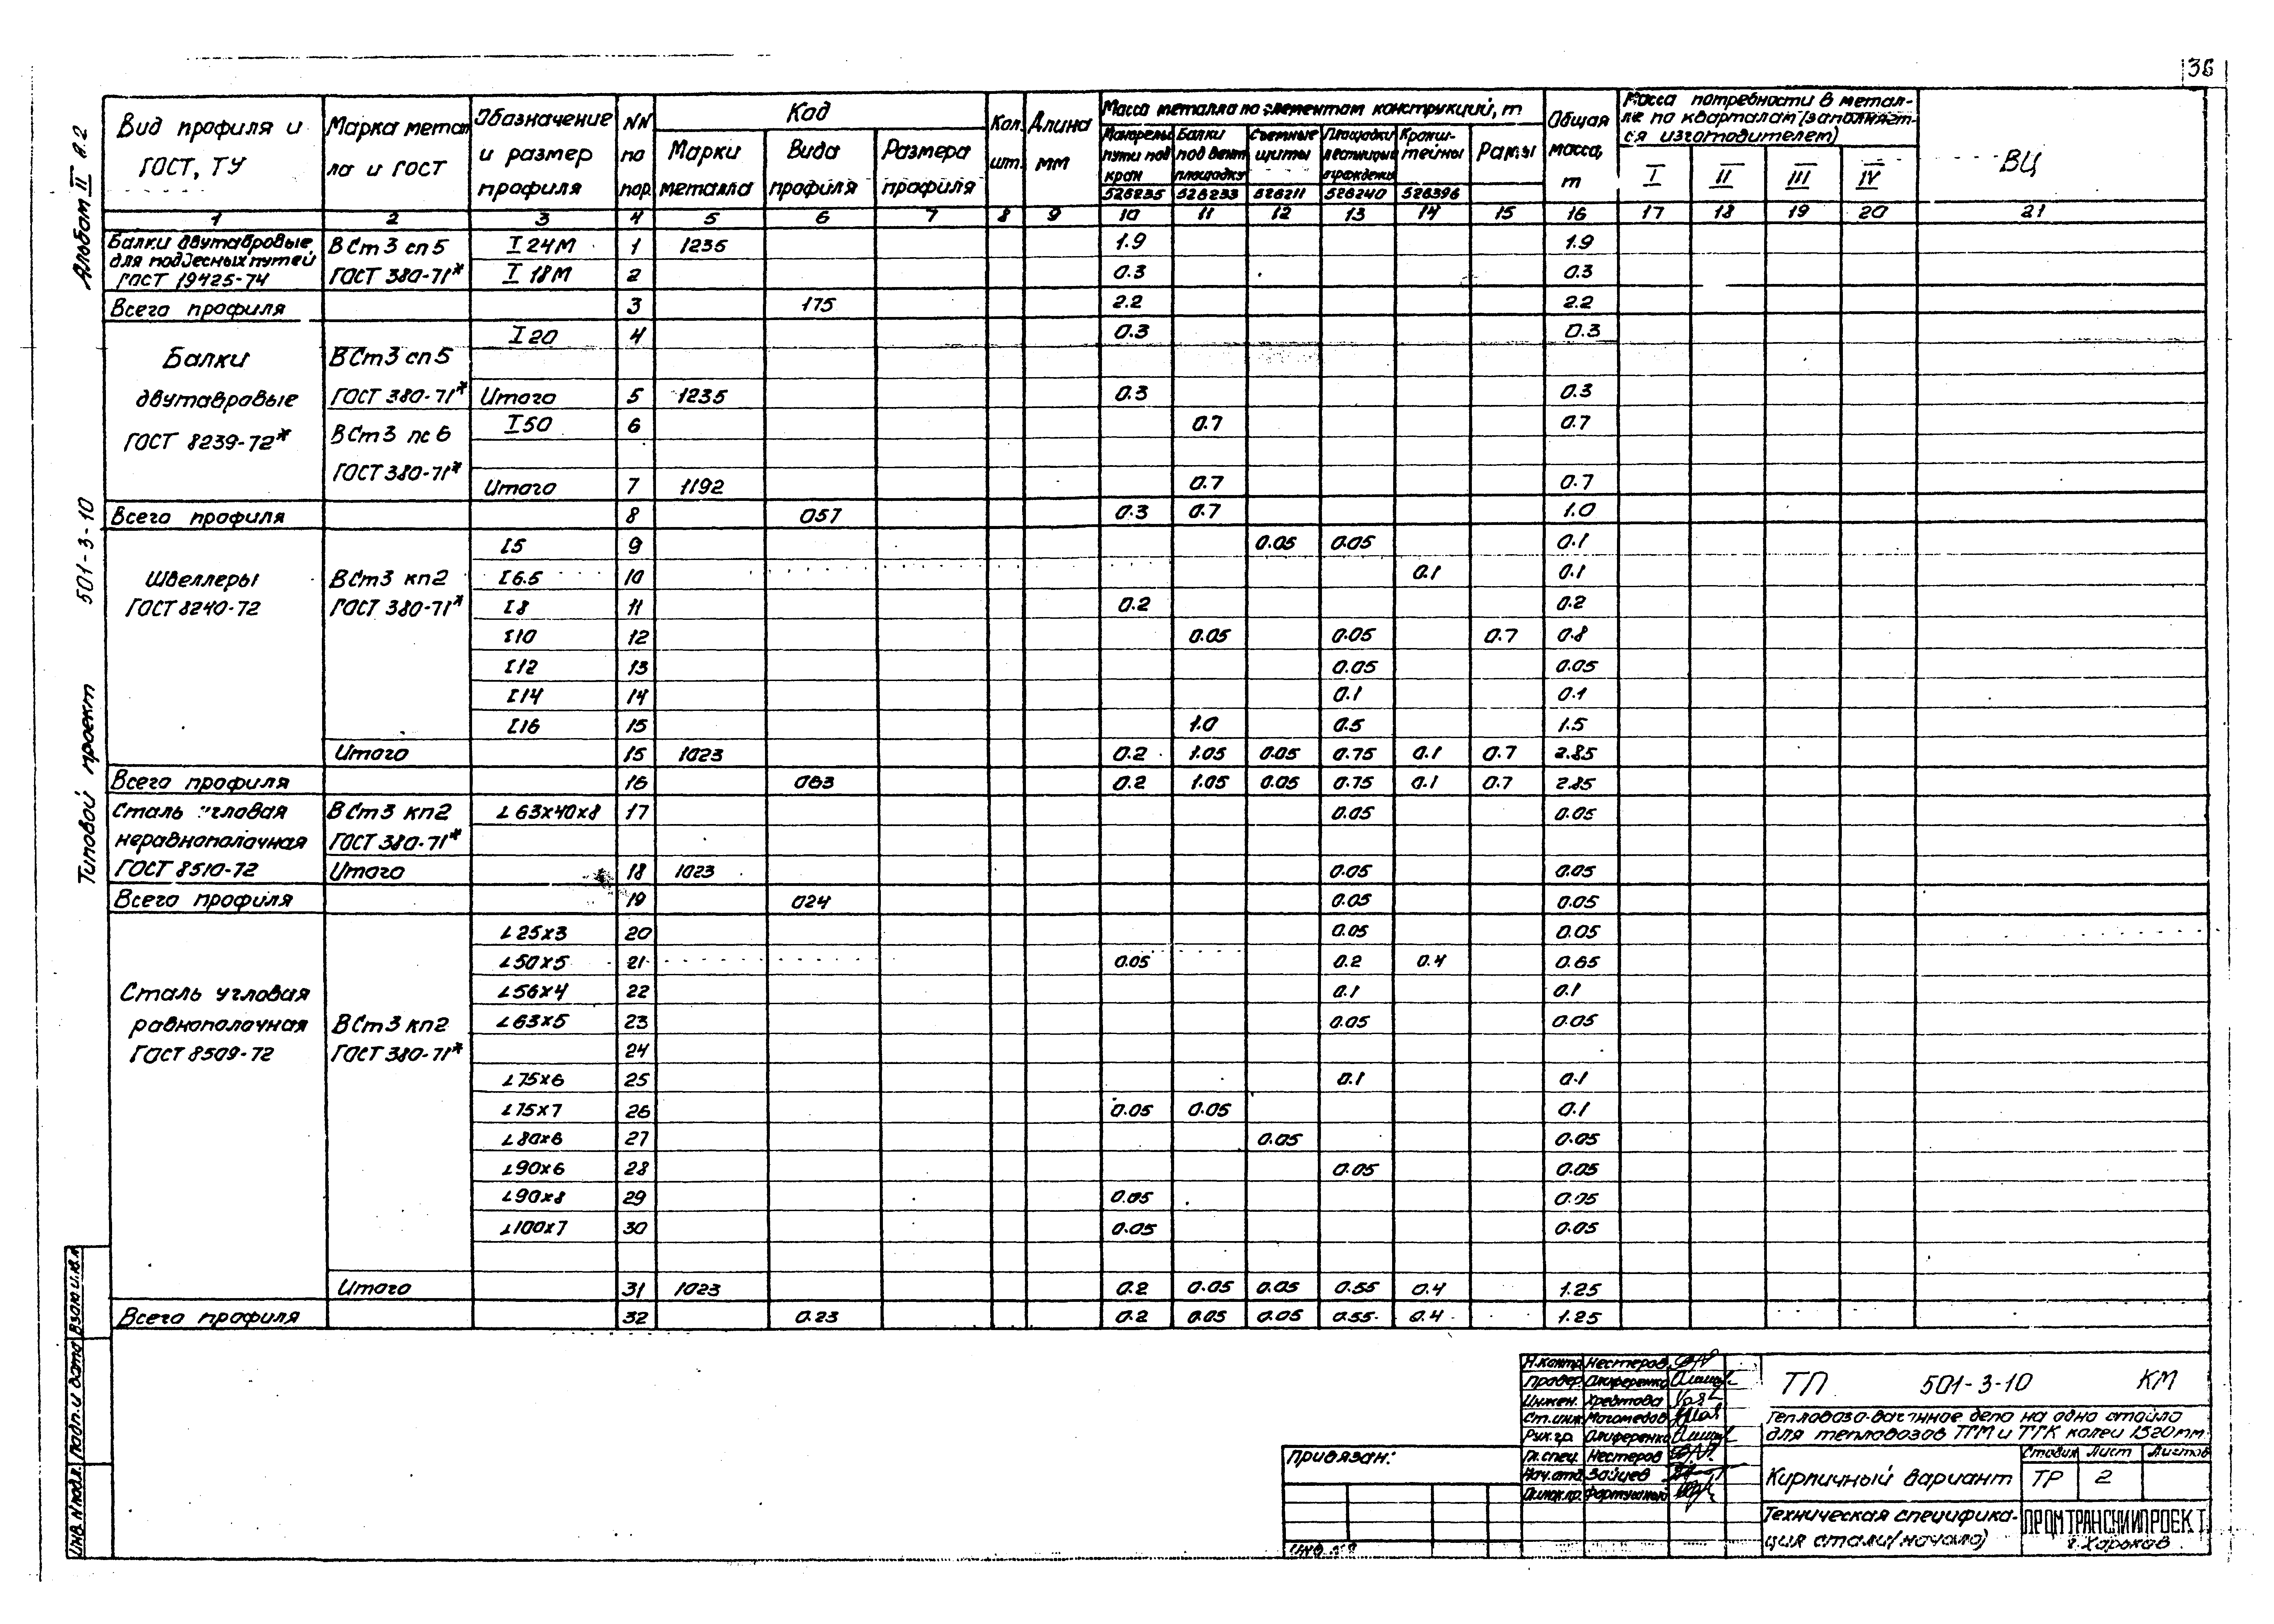 36
Альбом II в.2
Типовой проект 501-3-10
Вид профиля и ГОСТ, ТУ | Марка метал ла и ГОСТ | Обозначение и размер профиля | NN по пор. | Код | Кол. шт. | Длина мм | Масса металла по элементам конструкций, т | Общая масса, т | Масса потребности в металле по кварталам (заполняется изготовителем) | ВЦ
Марки металла | Вида профиля | Размера профиля | Монорельс пути под кран | Балки под вент площадку | Съемные щиты | Площадки лестницы ограждения | Кронштейны | Рамы | I | II | III | IV
526235 | 526233 | 526211 | 526240 | 526396
1 | 2 | 3 | 4 | 5 | 6 | 7 | 8 | 9 | 10 | 11 | 12 | 13 | 14 | 15 | 16 | 17 | 18 | 19 | 20 | 21
Балки двутавровые | ВСт3 сп5 | I 24М | 1 | 1235 | 1.9 | 1.9
для подвесных путей
ГОСТ 19425-74 | ГОСТ 380-71* | I 18М | 2 | 0.3 | 0.3
Всего профиля | 3 | 175 | 2.2 | 2.2
I 20 | 4 | 0.3 | 0.3
Балки | ВСт3 сп5
двутавровые | ГОСТ 380-71* | Итого | 5 | 1235 | 0.3 | 0.3
ГОСТ 8239-72* | ВСт3 пс6 | I 50 | 6 | 0.7 | 0.7
ГОСТ 380-71*
Итого | 7 | 1192 | 0.7 | 0.7
Всего профиля | 8 | 057 | 0.3 | 0.7 | 1.0
[5 | 9 | 0.05 | 0.05 | 0.1
Швеллеры | ВСт3 кп2 | [6.5 | 10 | 0.1 | 0.1
ГОСТ 8240-72 | ГОСТ 380-71* | [8 | 11 | 0.2 | 0.2
[10 | 12 | 0.05 | 0.05 | 0.7 | 0.8
[12 | 13 | 0.05 | 0.05
[14 | 14 | 0.1 | 0.1
[16 | 15 | 1.0 | 0.5 | 1.5
Итого | 15 | 1023 | 0.2 | 1.05 | 0.05 | 0.75 | 0.1 | 0.7 | 2.85
Всего профиля | 16 | 063 | 0.2 | 1.05 | 0.05 | 0.75 | 0.1 | 0.7 | 2.85
Сталь угловая | ВСт3 кп2 | L 63x40x8 | 17 | 0.05 | 0.05
неравнополочная | ГОСТ 380-71*
ГОСТ 8510-72 | Итого | 18 | 1023 | 0.05 | 0.05
Всего профиля | 19 | 024 | 0.05 | 0.05
L 25x3 | 20 | 0.05 | 0.05
L 50x5 | 21 | 0.05 | 0.2 | 0.4 | 0.65
Сталь угловая | L 56x4 | 22 | 0.1 | 0.1
равнополочная | ВСт3 кп2 | L 63x5 | 23 | 0.05 | 0.05
ГОСТ 8509-72 | ГОСТ 380-71* | 24
L 75x6 | 25 | 0.1 | 0.1
L 75x7 | 26 | 0.05 | 0.05 | 0.1
L 80x6 | 27 | 0.05 | 0.05
L 90x6 | 28 | 0.05 | 0.05
L 90x8 | 29 | 0.05 | 0.05
L 100x7 | 30 | 0.05 | 0.05
Итого | 31 | 1023 | 0.2 | 0.05 | 0.05 | 0.55 | 0.4 | 1.25
Всего профиля | 32 | 0.23 | 0.2 | 0.05 | 0.05 | 0.55 | 0.4 | 1.25
Инв. N подл. | Подп. и дата | Взам. инв. N
Привязан:
Инв. №
Н.контр. Нестеров
Провер. Олиференко
Инжен. Хревтова
Ст.инж. Магомедов
Рук.гр. Олиференко
Гл.спец. Нестеров
Нач.отд. Зайцев
ТП 501-3-10 КМ
Тепловозо-вагонное депо на одно стойло
для тепловозов ТГМ и ТГК колеи 1520 мм
Кирпичный вариант
Стадия | Лист | Листов
ТР | 2
Техническая спецификация стали (начало)
ПРОМТРАНСНИИПРОЕКТ
г. Харьков